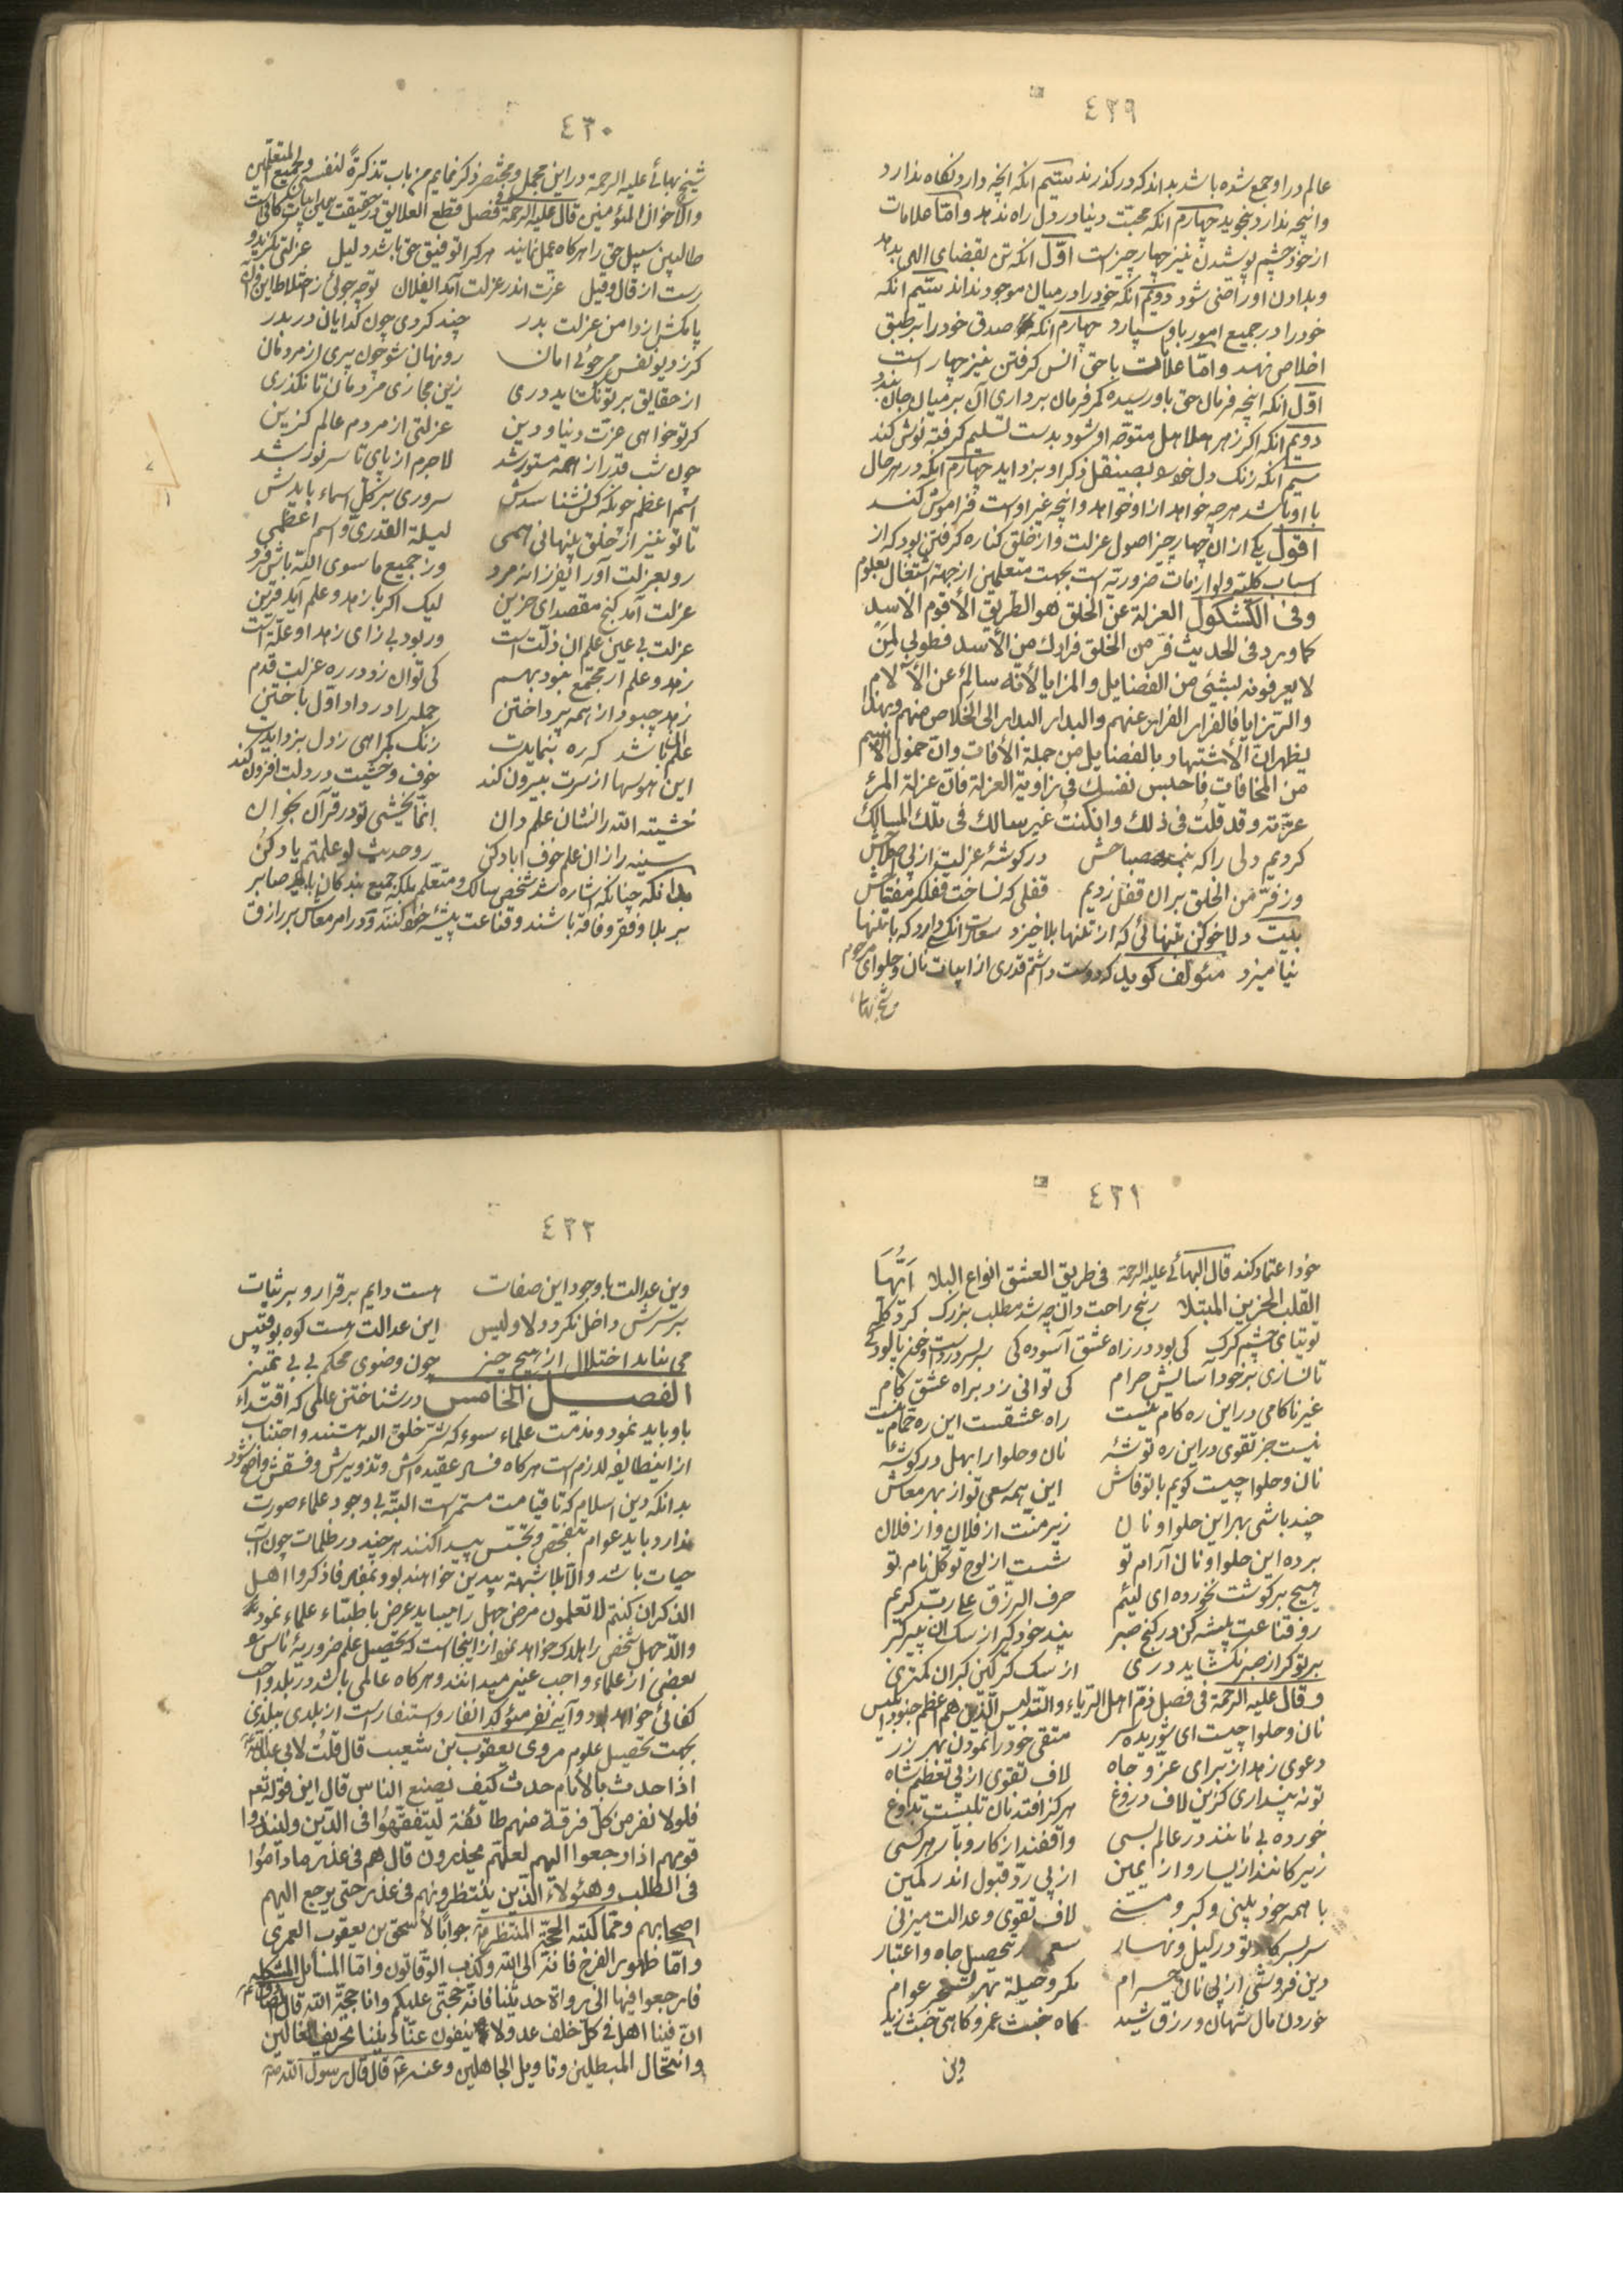 ٤٢٩
عالم در او جمع شده باشد بداند که در گذرند سیّم انکه انچه دارد نگاه ندارد
وانچه ندارد نجوید چهارم انکه محبّت دنیا در دل راه ندهد وامّا علامات
از خود چشم پوشیدن نیز چهار چیز است اوّل انکه تن بقضای الهی بدهد
وبدادن او راضی شود دویّم انکه خود را در میان موجود نداند سیّم انکه
خود را در جمیع امور باو سپارد چهارم انکه صدق خود را بر طبق
اخلاص نهد وامّا علامت با حق انس گرفتن نیز چهار است
اوّل انکه انچه فرمان حق باو رسیده کمر فرمان برداری آن بر میان جان بندد
دویّم انکه اگر زهر هلاهل متوجّه او شود بدست تسلیم گرفته نوش کند
سیّم انکه زنگ دل خود بصیقل ذکر او بزداید چهارم انکه در هر حال
با او باشد هر چه خواهد از او خواهد وانچه غیر اوست فراموش کند
اقول یکی از ان چهار چیز اصول عزلت واز خلق کناره گرفتن بود که از
اسباب کلّیّه ولوازمات ضروریّه است بجهت متعلمین از جهة اشتغال بعلوم
وفی الکشکول العزلة عن الخلق هو الطریق الأقوم الأسد
کما ورد فی الحدیث فرّ من الخلق فرارك من الأسد فطوبی لمن
لا یعرفونه بشیئ من الفضایل والمزایا لأنّه سالم عن الآلام
والرزایا فالفرار الفرار عنهم والبدار البدار الی الخلاص منهم وبهذا
یظهر انّ الأشتهار بالفضایل من جملة الأفات وانّ خمول الاسم
من المخافات فاحبس نفسك فی زاویة العزلة فانّ عزلة المرء
عزّ له وقد قلت فی ذلك وان کنت غیر سالك فی تلك المسالك
کردیم دلی را که نبد مصباحش در گوشهٔ عزلت از پی اصلاحش
وز فرّ من الخلق بران قفل زدیم قفلی که نساخت قفلگر مفتاحش
بیت دلا خو کن بتنهائی که از تنها بلا خیزد سعادت انکسی دارد که با تنها
نیامیزد مئولف گوید که دوست داشتم قدری از ابیات نان وحلوای مرحوم
شیخ بها
٤٣٠
شیخ بهائی علیه الرحمة در این مجمل ومختصر ذکر نمایم من باب تذکرةً لنفسی ولجمیع المتعلّمین
والأخوان المئومنین قال علیه الرحمة فصل قطع العلایق در حقیقت همین ابیات کافی است
طالبین سبیل حق را هر گاه عمل نمایند هر کرا توفیق حق باشد دلیل عزلتی بگزید و
رست از قال وقیل عزت اندر عزلت آمد ایفلان تو چه جوئی ز اختلاط این وآن
پا مکش از دامن عزلت بدر چند گردی چون گدایان در بدر
گر ز دیو نفس میجوئی امان رو نهان شو چون پری از مردمان
از حقایق بر تو نگشاید دری زین مجازی مردمان تا نگذری
گر تو خواهی عزّت دنیا ودین عزلتی از مردم عالم گزین
چون شب قدر از همه مستور شد لاجرم از پای تا سر نور شد
اسم اعظم چونکه کس نشناسدش سروری بر کلّ اسماء بایدش
تا تو نیز از خلق پنهانی همی لیلة القدری واسم اعظمی
رو بعزلت آور ایفرزانه مرد وز جمیع ما سوی اللّه باش فرد
عزلت آمد گنج مقصد ای حزین لیک اگر با زهد وعلم آید قرین
عزلت بی عین علم ان ذلّت است ور بود بی زای زهد او علّة است
زهد وعلم ار مجتمع نبود بهم کی توان زد در ره عزلت قدم
زهد چبود از همه پرداختن جمله را در داو اوّل باختن
علم آن باشد که ره بنمایدت زنگ گمراهی ز دل بزدایدت
این هوسها از سرت بیرون کند خوف وخشیت در دلت افزون کند
خشیة اللّه را نشان علم دان انّما یخشی تو در قرآن بخوان
سینه را زان علم خوف اباد کن رو حدیث لو علمتم یاد کن
بدانکه چنانکه اشاره شد شخص سالک ومتعلم بلکه جمیع بندگان باید صابر
بر بلا وفقر وفاقه باشند وقناعت پیشه خود کنند ودر امر معاش بر رازق
٤٣١
خود اعتماد کند قال البهائی علیه الرحمة فی طریق العشق انواع البلا ایّها
القلب الحزین المبتلا رنج راحت دان چه شد مطلب بزرگ گرد گله
توتیای چشم گرگ کی بود در راه عشق آسودگی سر بسر درد است وخون پالودگی
تا نسازی بر خود آسایش حرام کی توانی زد براه عشق گام
غیر ناکامی در این ره کام نیست راه عشقست این ره حمّام نیست
نیست جز تقوی در این ره توشهٔ نان وحلوا را بهل در گوشهٔ
نان وحلوا چیست گویم با تو فاش این همه سعی تو از بهر معاش
چند باشی بهر این حلوا ونان زیر منّت از فلان واز فلان
برده این حلوا ونان آرام تو شست از لوح توکل نام تو
هیچ بر گوشت نخورده ای لئیم حرف الرزق علی ربّ کریم
رو قناعت پیشه کن در کنج صبر پند خود گیر از سگ ان پیر گبر
بر تو گر از صبر نگشاید دری از سگ گرگین گبران کمتری
وقال علیه الرحمة فی فصل ذمّ اهل الرّیاء والتدلیس الّذین هم اعظم جنود ابلیس
نان وحلوا چیست ای شوریده سر متقی خود را نمودن بهر زر
دعوی زهد از برای عزّ وجاه لاف تقوی از پی تعظیم شاه
تو نه پنداری کزین لاف دروغ هرگز افتد نان تلبیست بدوغ
خورده بینانند در عالم بسی واقفند از کار وبار هر کسی
زیرکانند از یسار واز یمین از پی ردّ وقبول اندر کمین
با همه خودبینی وکبر ومنی لاف تقوی وعدالت میزنی
سر بسر کار تو در لیل ونهار سعی در تحصیل جاه واعتبار
دین فروشی از پی نان حرام مکر وحیله بهر تسخیر عوام
خوردن مال شهان ورزق شید گاه خبث عمرو وگاهی خبث زید
وین
٤٣٢
وین عدالت با وجود این صفات هست دایم بر قرار وبر ثبات
بر سرش داخل نگردد لا ولیس این عدالت هست کوه بوقبیس
می نیابد اختلال از هیچ چیز چون وضوی محکم بی بی تمیز
الفصل الخامس در شناختن عالمی که اقتداء
باو باید نمود ومذمت علماء سوء که شرّ خلق اللّه هستند واجتناب
از این طایفه لازم است هر گاه فساد عقیده‌اش وتزویرش وفسقش واضح شود
بدانکه دین اسلام که تا قیامت مستمر است البتّه بی وجود علماء صورت
ندارد باید عوام بتفحّص وتجسّس پیدا کنند هر چند در ظلمات چون آب
حیات باشد والّا بلا شبهة بیدین خواهند بود بمفاد فاذکروا اهل
الذکر ان کنتم لا تعلمون مرض جهل را میباید عرض باطبّاء علماء نمود
والّا جهل شخص را هلاک خواهد نمود از اینجاست که تحصیل علم ضروریهٔ ناس را
بعضی از علماء واجب عینی میدانند وهر گاه عالمی باشد در بلد واجب
کفائی خواهد بود وآیه نفر مئوکد انفار واستنفار است از بلدی ببلدی
بجهت تحصیل علوم مروی یعقوب بن شعیب قال قلت لابی عبد اللّه
اذا حدث بالأمام حدث کیف یصنع الناس قال این قوله تع
فلولا نفر من کلّ فرقة منهم طائفة لیتفقّهوا فی الدّین ولینذروا
قومهم اذا رجعوا الیهم لعلّهم یحذرون قال هم فی عذر ما داموا
فی الطلب وهئولاء الّذین ینتظرونهم فی عذر حتی یرجع الیهم
اصحابهم وممّا کتبه الحجّة المنتظر جوابًا لأسحق بن یعقوب العمری
وامّا ظهور الفرج فانّه الی اللّه وکذب الوقّاتون وامّا المسائل المشکله
فارجعوا فیها الی رواة حدیثنا فانّه حجّتی علیکم وانا حجّة اللّه قال الصادق
انّ فینا اهل فی کلّ خلف عدولا ینفون عنّا تحریف الغالین
وانتحال المبطلین وتاویل الجاهلین وعنه قال قال رسول اللّه